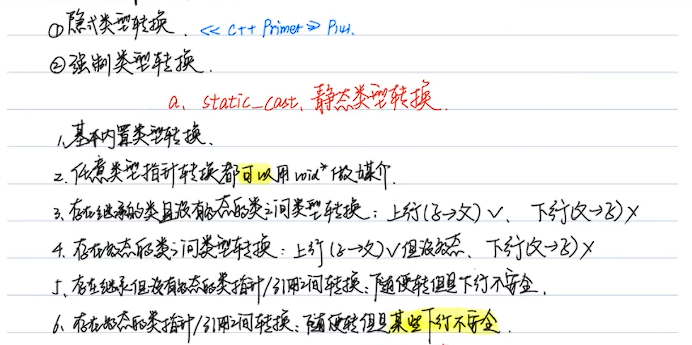 ①隐式类型转换. <<C++ Primer>> Plus.
②强制类型转换.
a、static_cast、静态类型转换.
1、基本内置类型转换.
2、任意类型指针转换都可以用void*做媒介.
3、存在继承的类且没有多态的类之间类型转换:上行(子→父)√、下行(父→子)×
4、存在多态的类之间类型转换:上行(子→父)√但没多态、下行(父→子)×
5、存在继承但没有多态的类指针/引用之间转换:随便转但是下行不安全.
6、存在多态的类指针/引用之间转换:随便转但是某些下行不安全.